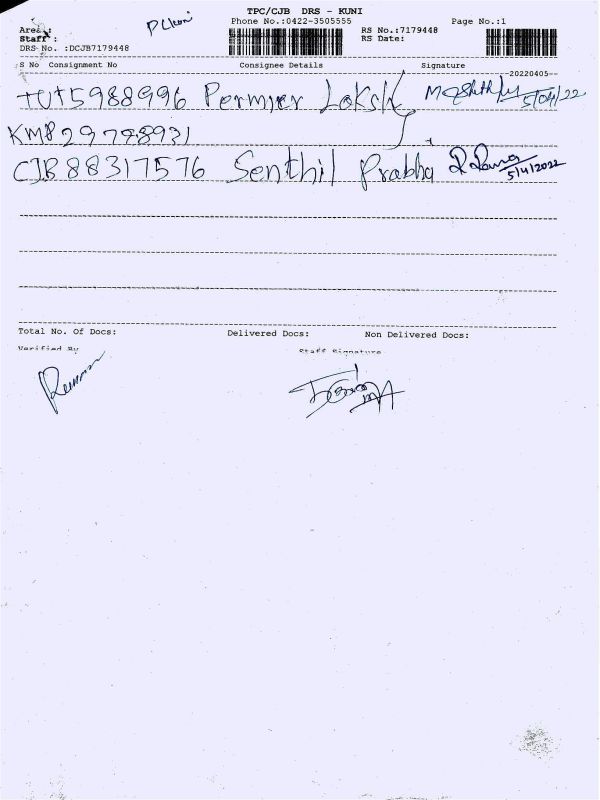 TPC/CJB DRS - KUNI
Phone No.:0422-3505555 Page No.:1
Area :
Staff :
RS No.:7179448
RS Date:
DRS No. :DCJB7179448
S No Consignment No Consignee Details Signature
20220405
TUT5988996 Permier 5/04/22
KMP29798931
CJB88317576 Senthil Prabha 5/4/2022
Total No. Of Docs: Delivered Docs: Non Delivered Docs:
Verified By Staff Signature